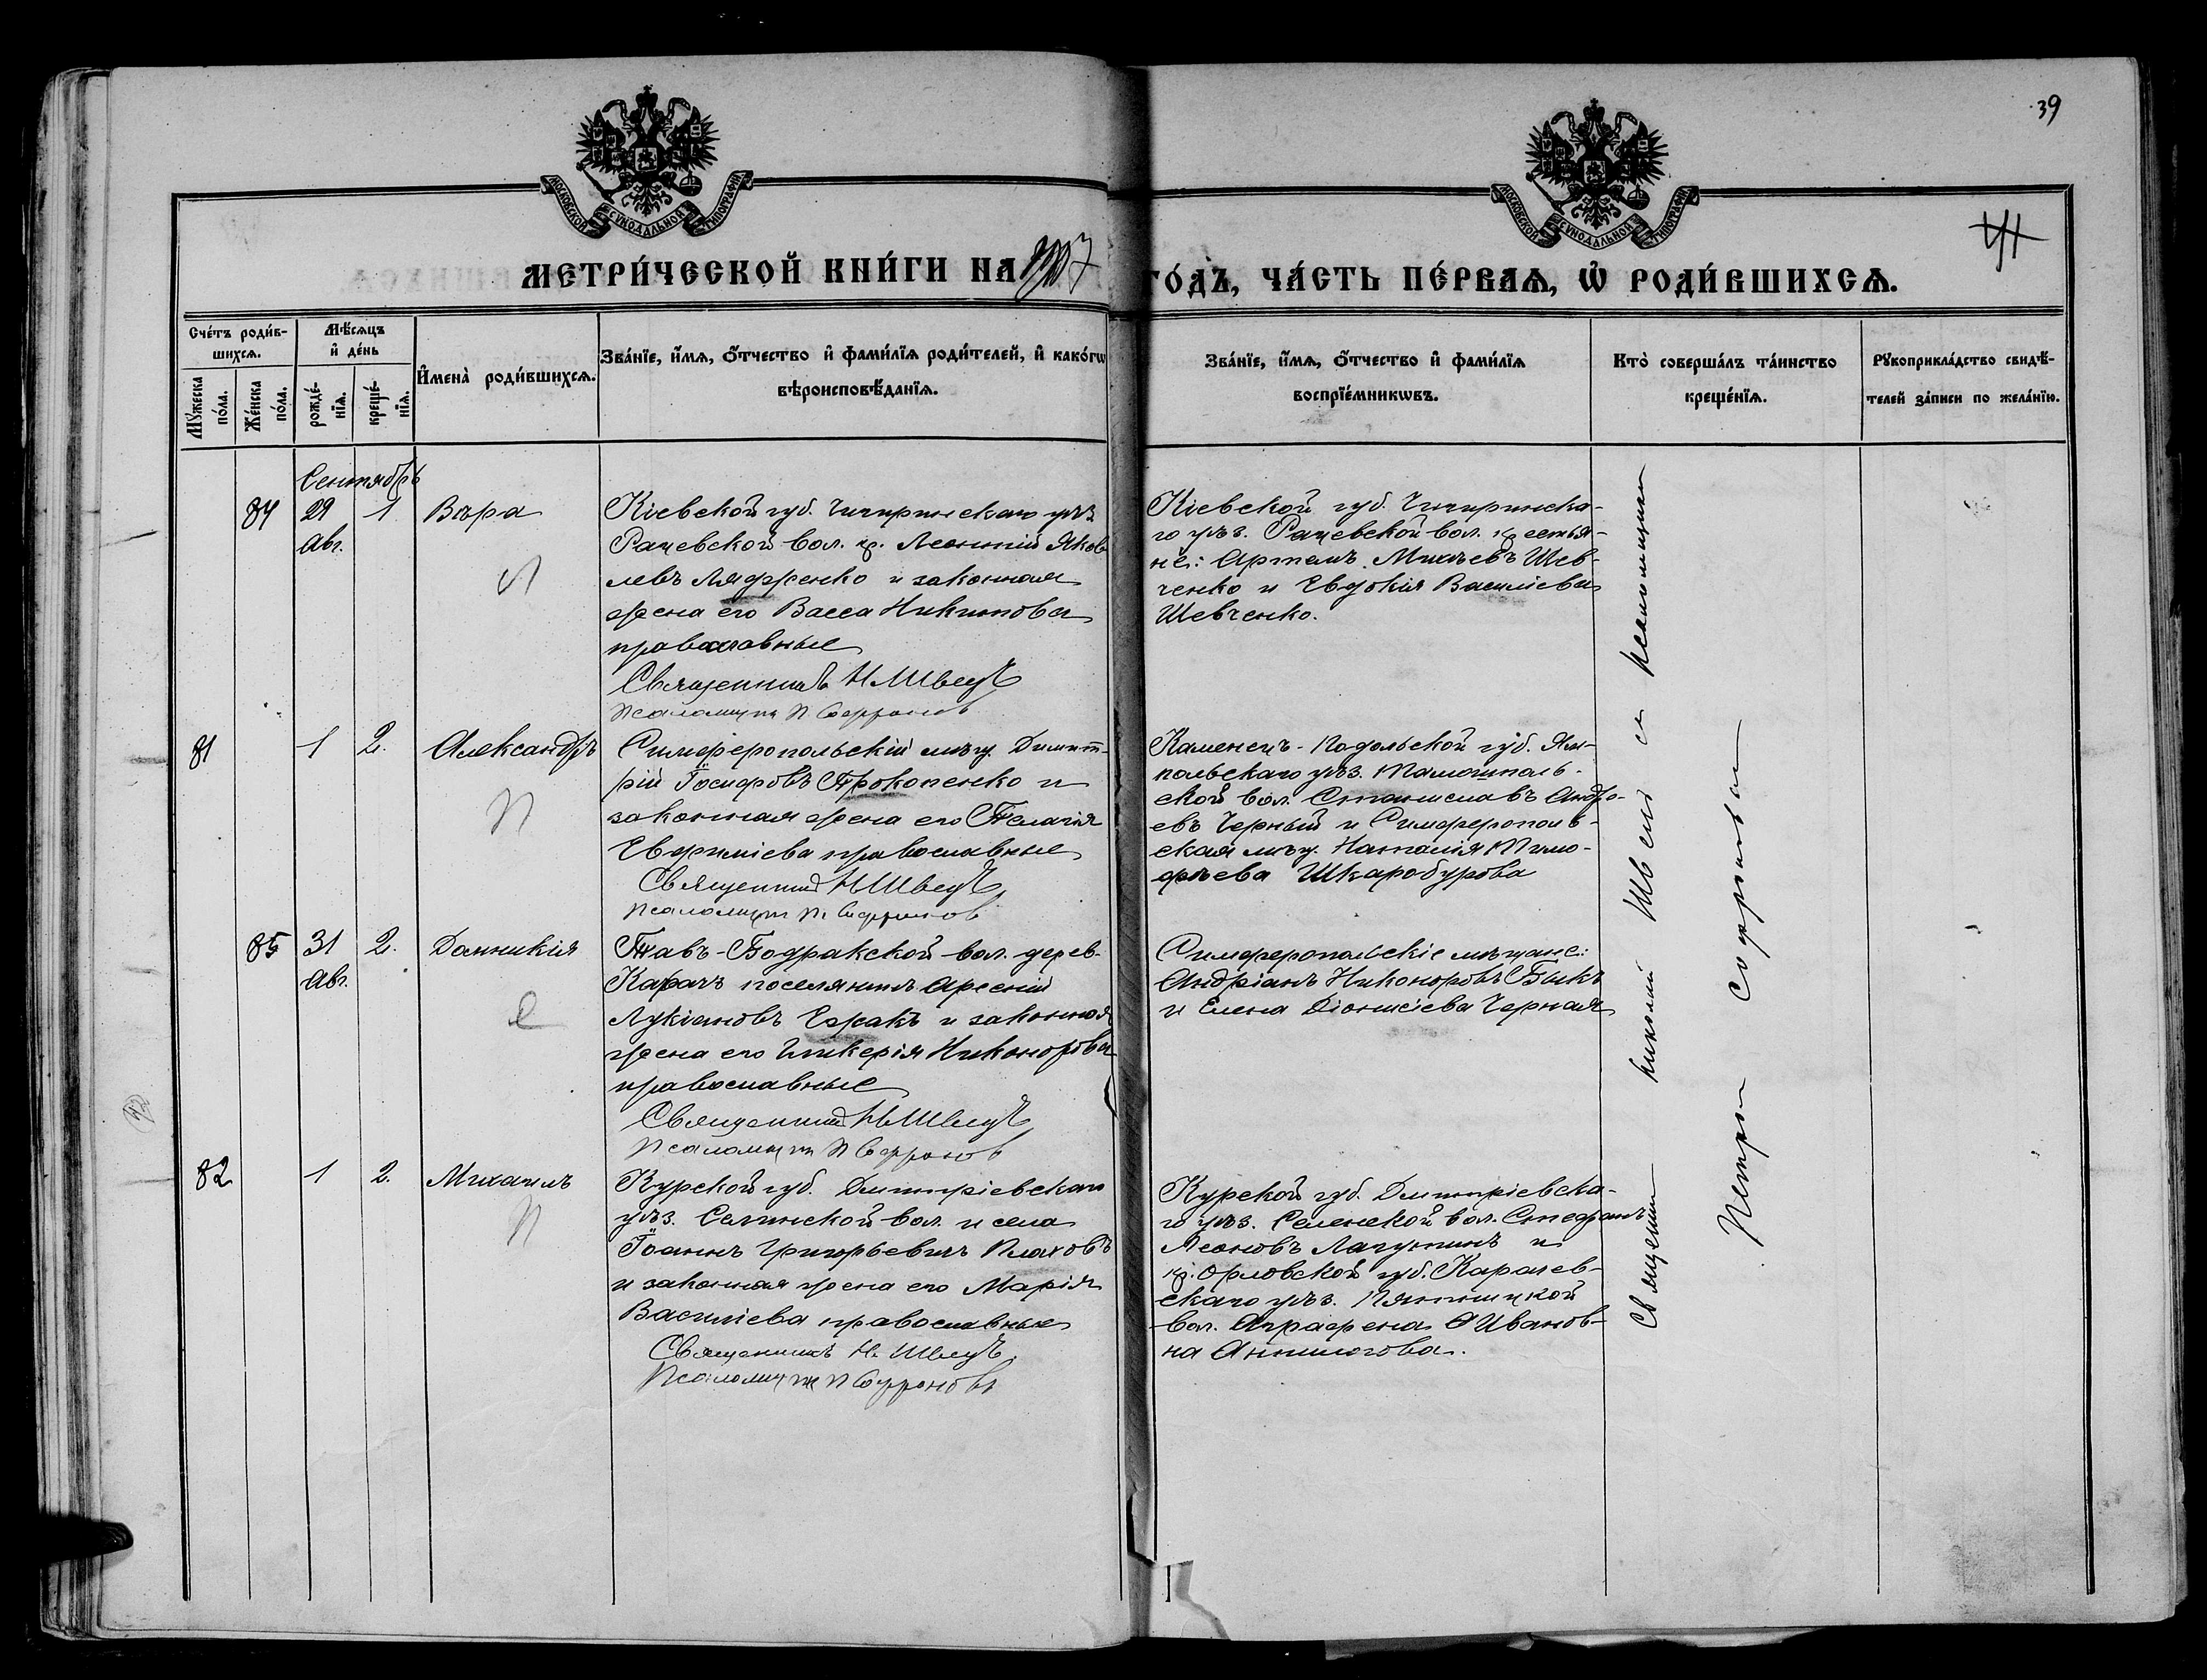 39
МОСКОВСКОЙ СѴНОДАЛЬНОЙ ТИПОГРАФІИ
МОСКОВСКОЙ СѴНОДАЛЬНОЙ ТИПОГРАФІИ
МЕТРИ́ЧЕСКОЙ КНИ́ГИ НА 1907 ГО́ДЪ, ЧА́СТЬ ПЕ́РВАѦ, Ѽ РОДИ́ВШИХСѦ.
Сче́тъ роди́в-
шихсѧ.
Мꙋ́жеска по́ла.
Же́нска по́ла.
Мѣ́сѧцъ
и҆ де́нь
рожде́-
нїѧ.
креще́-
нїѧ.
И҆мена̀ роди́вшихсѧ.
Зва́нїе, и҆́мѧ, ѻ҆́тчество и҆ фами́лїѧ роди́телей, и҆ како́гѡ
вѣроисповѣ́данїѧ.
Зва́нїе, и҆́мѧ, ѻ҆́тчество и҆ фами́лїѧ
воспрїе́мникѡвъ.
Кто̀ соверша́лъ та́инство
креще́нїѧ.
Рꙋкоприкла́дство свидѣ́-
телей за́писи по жела́нїю.
Сентябрь
84 29 1 Вѣра
Авг.
Кіевской губ. Чигиринскаго уѣз.
Рацевской вол. кр. Леонтій Яков-
левъ Ляфренко и законная
жена его Васса Никитова
православные
Священникъ Н Швецъ
Псаломщик П Софронов
Кіевской губ. Чигиринска-
го уѣз. Рацевской вол. крестья-
не: Артемъ Михѣевъ Шев-
ченко и Евдокія Васильева
Шевченко.
81 1 2. Александръ
Симферопольскій мѣщ. Димит-
рій Іосифовъ Прокопенко и
законная жена его Пелагія
Евфиміева православные
Священникъ Н Швецъ
Псаломщик П. Софронов
Каменецъ-Подольской губ. Ям-
польскаго уѣз. Томашполь-
ской вол. Станиславъ Андре-
евъ Черный и Симферополь-
ская мѣщ. Наталія Тимо-
фѣева Шкаробурова
85 31 2. Домникія
Авг.
Тавъ-Бодракской вол. дерев.
Карачъ поселянинъ Арсеній
Лукіановъ и законная
жена его Гликерія Никонорова
православные
Священникъ Н. Швецъ
Псаломщик П Софронов
Симферопольскіе мѣщане:
Андріанъ Никоноровъ Быкъ
и Елена Діонисіева Черная
82 1 2. Михаилъ
Курской губ. Димитріевскаго
уѣз. Селинской вол. и села
Іоаннъ Григорьевичъ Плаховъ
и законная жена его Марія
Василіева православные
Священникъ Н. Швецъ
Псаломщик П Софроновъ
Курской губ. Димитріевска-
го уѣз. Селенской вол. Стефанъ
Леоновъ Лагутинъ и
кр. Орловской губ. Карачев-
скаго уѣз. Пятницкой
вол. Апраѳена Иванов-
на Анпилогова.
Священник Николай Швец и псаломщик
Петръ Софронов